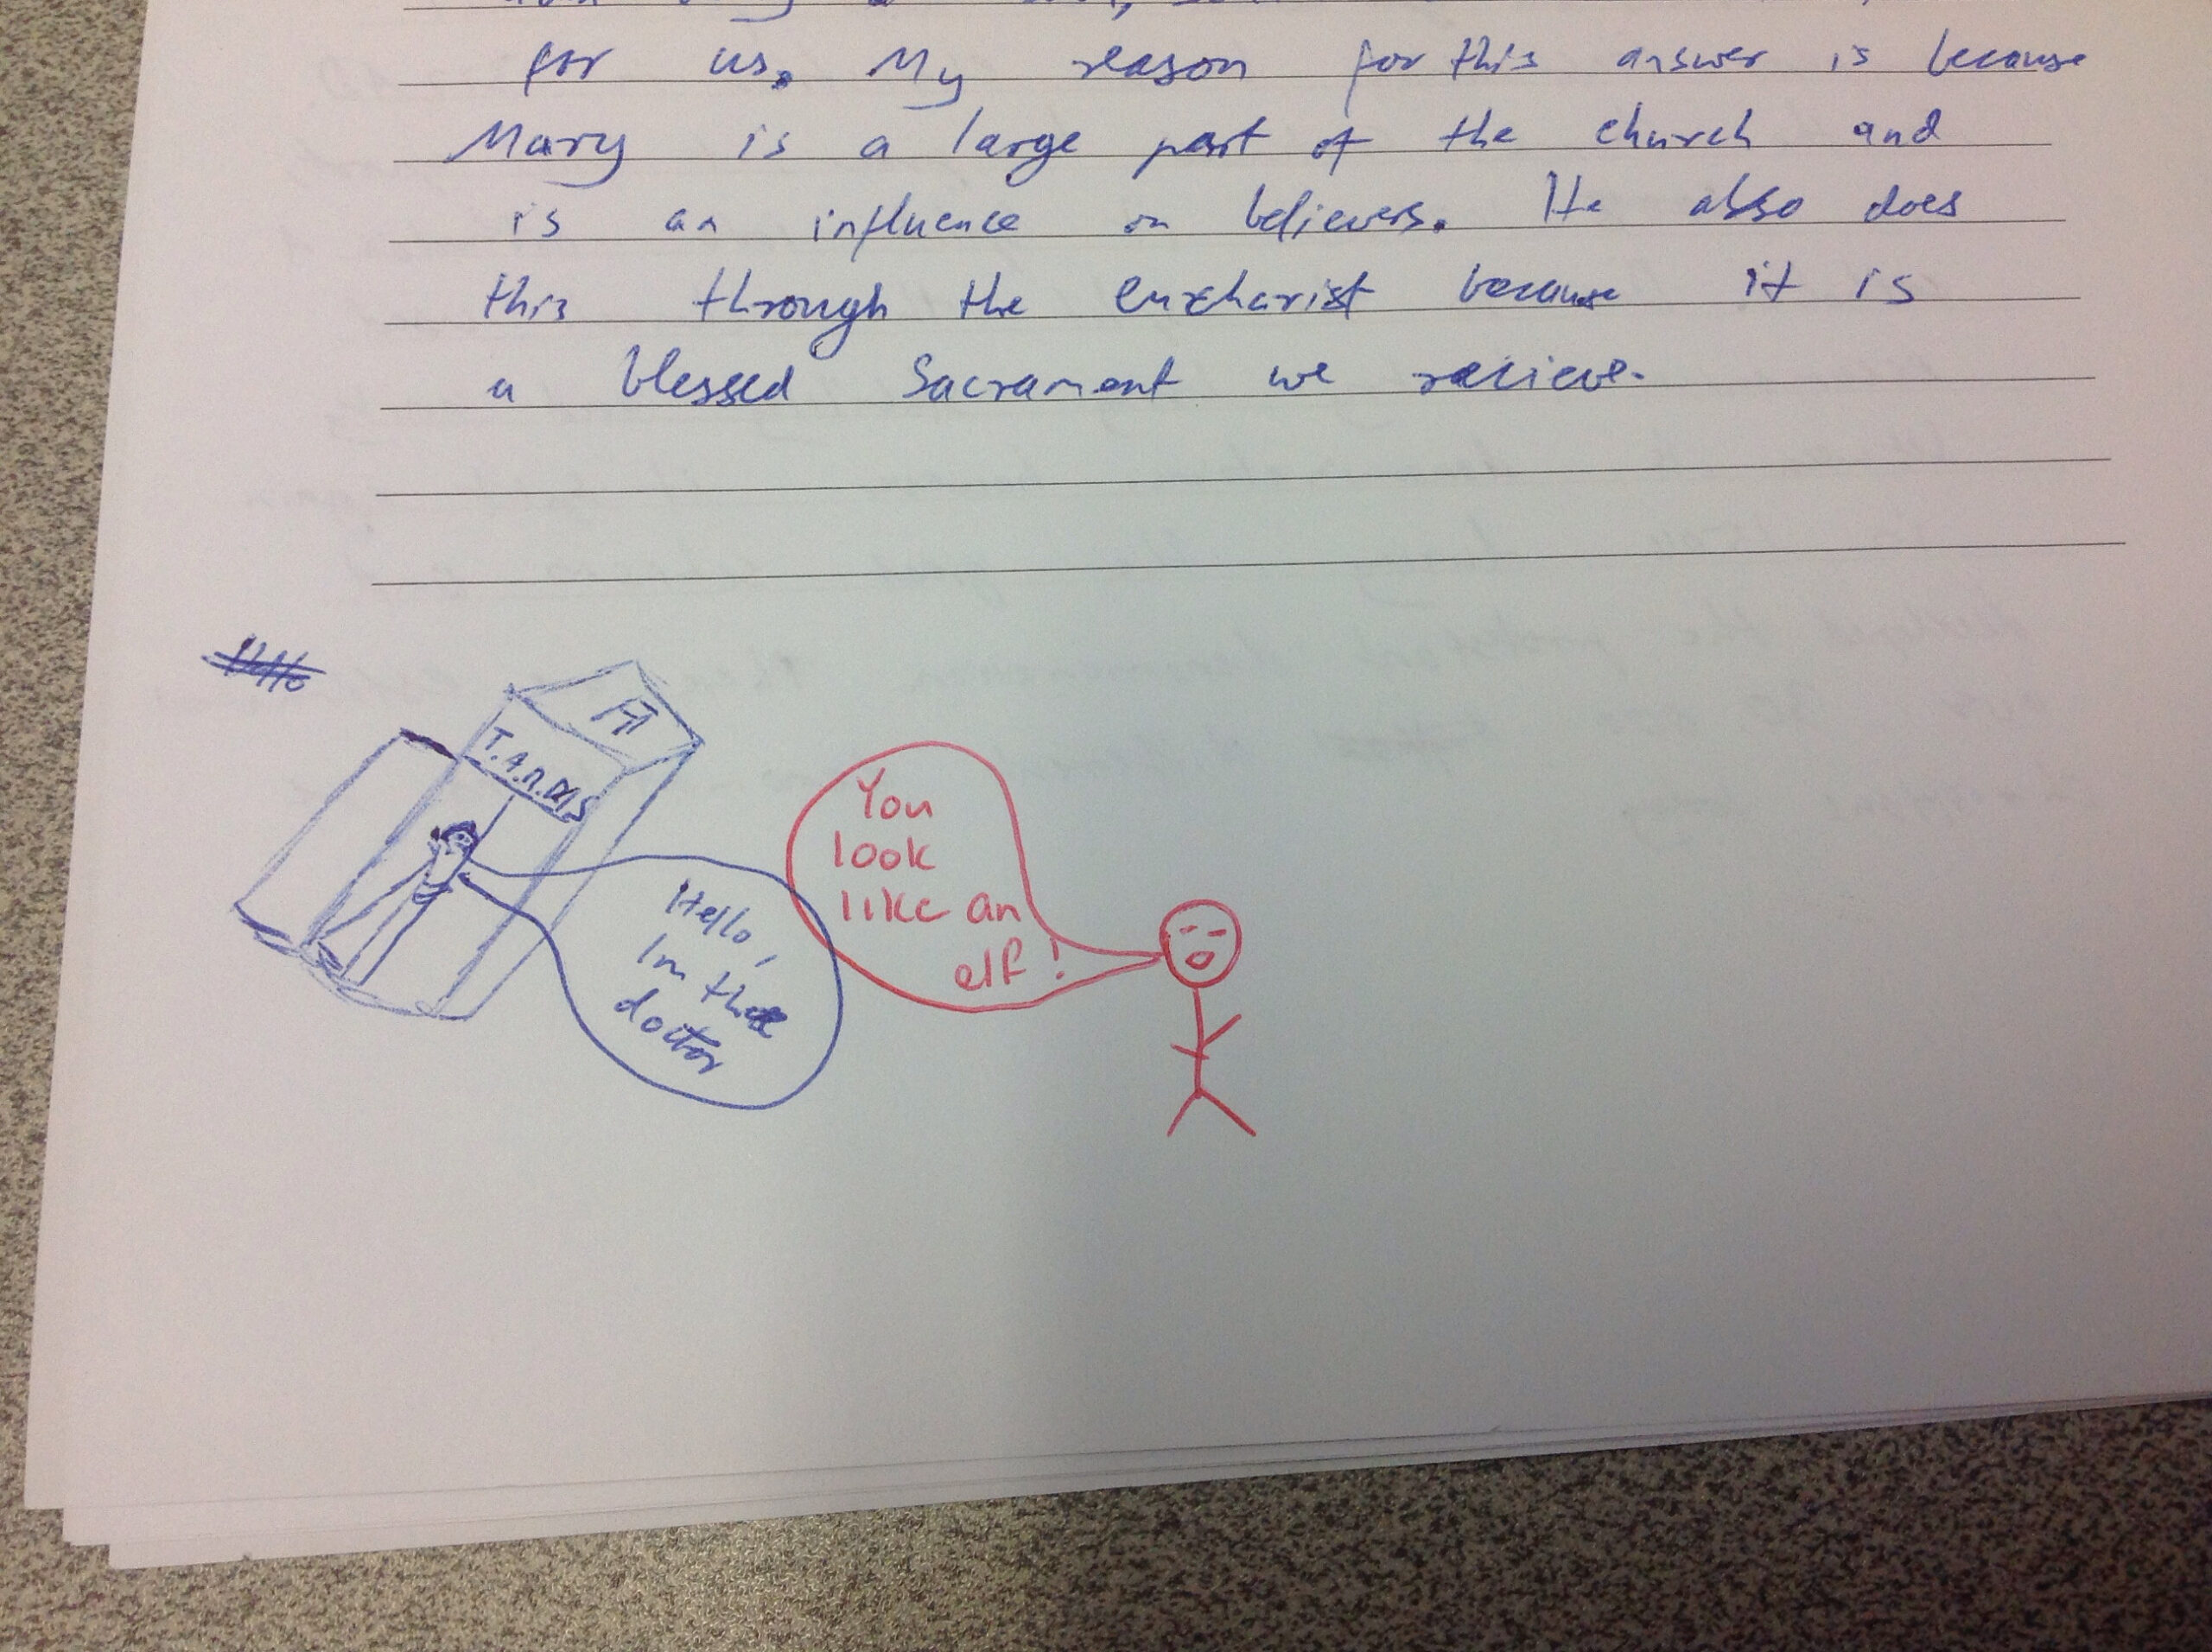 for us. My reason for this answer is because
Mary is a large part of the church and
is an influence on believers. He also does
this through the eucharist because it is
a blessed Sacrament we recieve.
T.A.R.D.I.S
Hello,
Im the
doctor
You
look
like an
elf!